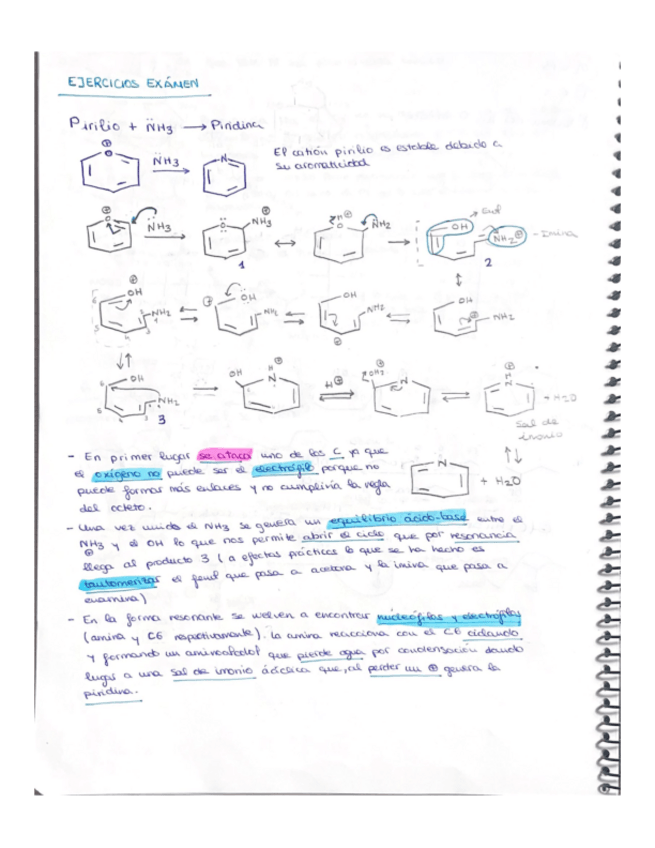 EJERCICIOS EXÁMEN
Pirilio + N̈H3 → Piridina
El catión pirilio es estable debido a
su aromaticidad
N̈H3
N
O
⊕
N̈H3
NH3
1
N̈H2
OH
Enol
NH2⊕
- Imina
2
OH
NH2
OH
NH2
OH
NH2
OH
NH2
OH
NH2
3
OH
H
N
H⊕
OH2
N
H
N
+ H2O
sal de
imonio
N
+ H2O
- En primer lugar se ataca uno de los C ya que
el oxígeno no puede ser el electrófilo porque no
puede formar más enlaces y no cumpliría la regla
del octeto.
- Una vez unido el NH3 se genera un equilibrio ácido-base entre el
NH3 y el OH lo que nos permite abrir el ciclo que por resonancia
⊕
llega al producto 3 (a efectos prácticos lo que se ha hecho es
tautomerizar el fenol que pasa a acetona y la imina que pasa a
enamina)
- En la forma resonante se vuelven a encontrar nucleófilos y electrófilos
(amina y C6 respectivamente). La amina reacciona con el C6 ciclando
y formando un aminoalcohol que pierde agua por condensación dando
lugar a una sal de imonio cíclica que, al perder un ⊕ genera la
piridina.